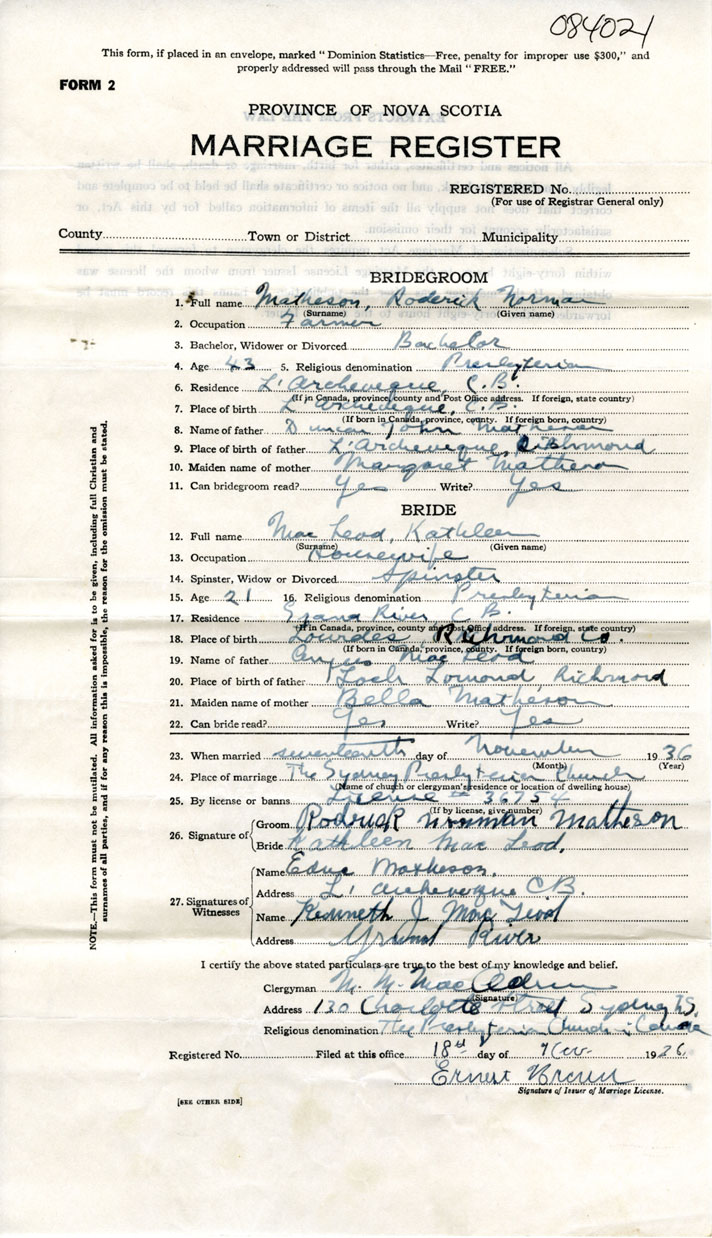 084021
This form, if placed in an envelope, marked "Dominion Statistics—Free, penalty for improper use $300," and
properly addressed will pass through the Mail "FREE."
FORM 2
PROVINCE OF NOVA SCOTIA
MARRIAGE REGISTER
REGISTERED No.
(For use of Registrar General only)
County Town or District Municipality
BRIDEGROOM
1. Full name Matheson, Roderick Norman
(Surname) (Given name)
2. Occupation Farmer
3. Bachelor, Widower or Divorced Bachelor
4. Age 43 5. Religious denomination Presbyterian
6. Residence L'Archeveque, C.B.
(If in Canada, province, county and Post Office address. If foreign, state country)
7. Place of birth L'Archeveque, C.B.
(If born in Canada, province, county. If foreign born, country)
8. Name of father Duncan John Matheson
9. Place of birth of father L'Archeveque, Richmond
10. Maiden name of mother Margaret Matheson
11. Can bridegroom read? Yes Write? Yes
BRIDE
12. Full name Mac Leod, Kathleen
(Surname) (Given name)
13. Occupation Housewife
14. Spinster, Widow or Divorced Spinster
15. Age 21 16. Religious denomination Presbyterian
17. Residence Grand River, C.B.
(If in Canada, province, county and Post Office address. If foreign, state country)
18. Place of birth Lourdes, Richmond Co.
(If born in Canada, province, county. If foreign born, country)
19. Name of father Angus Mac Leod
20. Place of birth of father Loch Lomond, Richmond
21. Maiden name of mother Bella Matheson
22. Can bride read? Yes Write? Yes
23. When married seventeenth day of November 1936
(Month) (Year)
24. Place of marriage The Sydney Presbyterian Church
(Name of church or clergyman's residence or location of dwelling house)
25. By license or banns License # 36754
(If by license, give number)
26. Signature of
Groom Rodrick Norman Matheson
Bride Kathleen Mac Leod.
27. Signatures of Witnesses
Name Edna Matheson.
Address L'Archeveque C.B.
Name Kenneth J MacLeod
Address Grand River
I certify the above stated particulars are true to the best of my knowledge and belief.
Clergyman M. M.
(Signature)
Address 130 Charlotte Street Sydney N.S.
Religious denomination The Presbyterian Church in Canada
Registered No. Filed at this office 18th day of Nov 1936
Ernest Brown
Signature of Issuer of Marriage License.
[SEE OTHER SIDE]
NOTE.—This form must not be mutilated. All information asked for is to be given, including full Christian and
surnames of all parties, and if for any reason this is impossible, the reason for the omission must be stated.